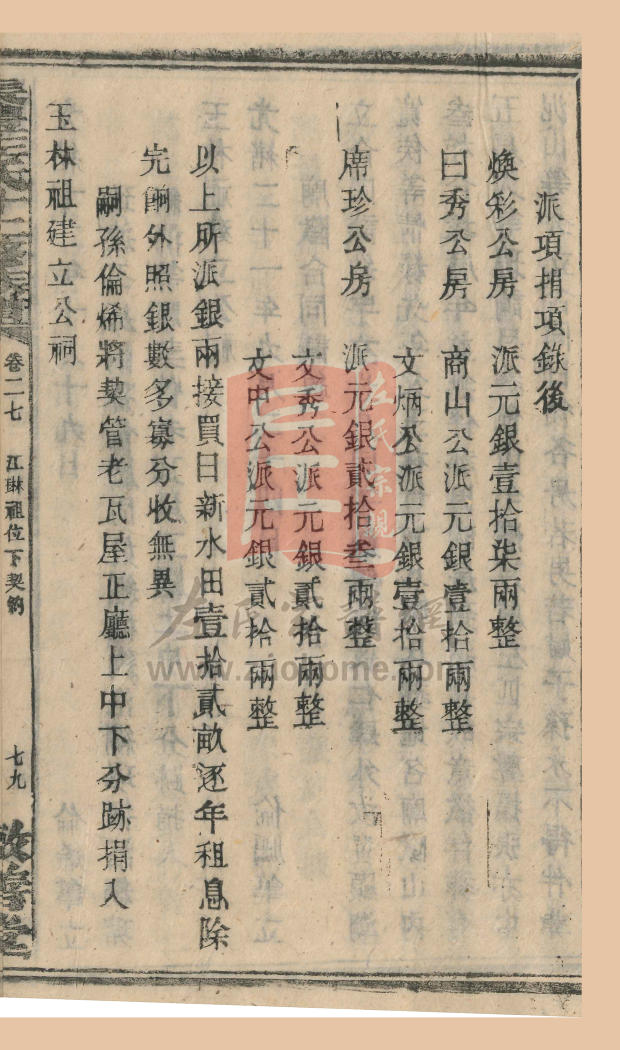 派項捐項錄後
煥彩公房 派元銀壹拾柒兩整
曰秀公房 商山公派元銀壹拾兩整
文炳公派元銀壹拾兩整
席珍公房 派元銀貳拾叁兩整
文秀公派元銀貳拾兩整
文中公派元銀貳拾兩整
以上所派銀兩接買日新水田壹拾貳畝逐年租息除
完餉外照銀數多寡分收無異
嗣孫倫烯將契管老瓦屋正廳上中下分跡捐入
玉林祖建立公祠
卷二七 江琳祖位下契約 七九
左氏宗親
www.zuohome.com